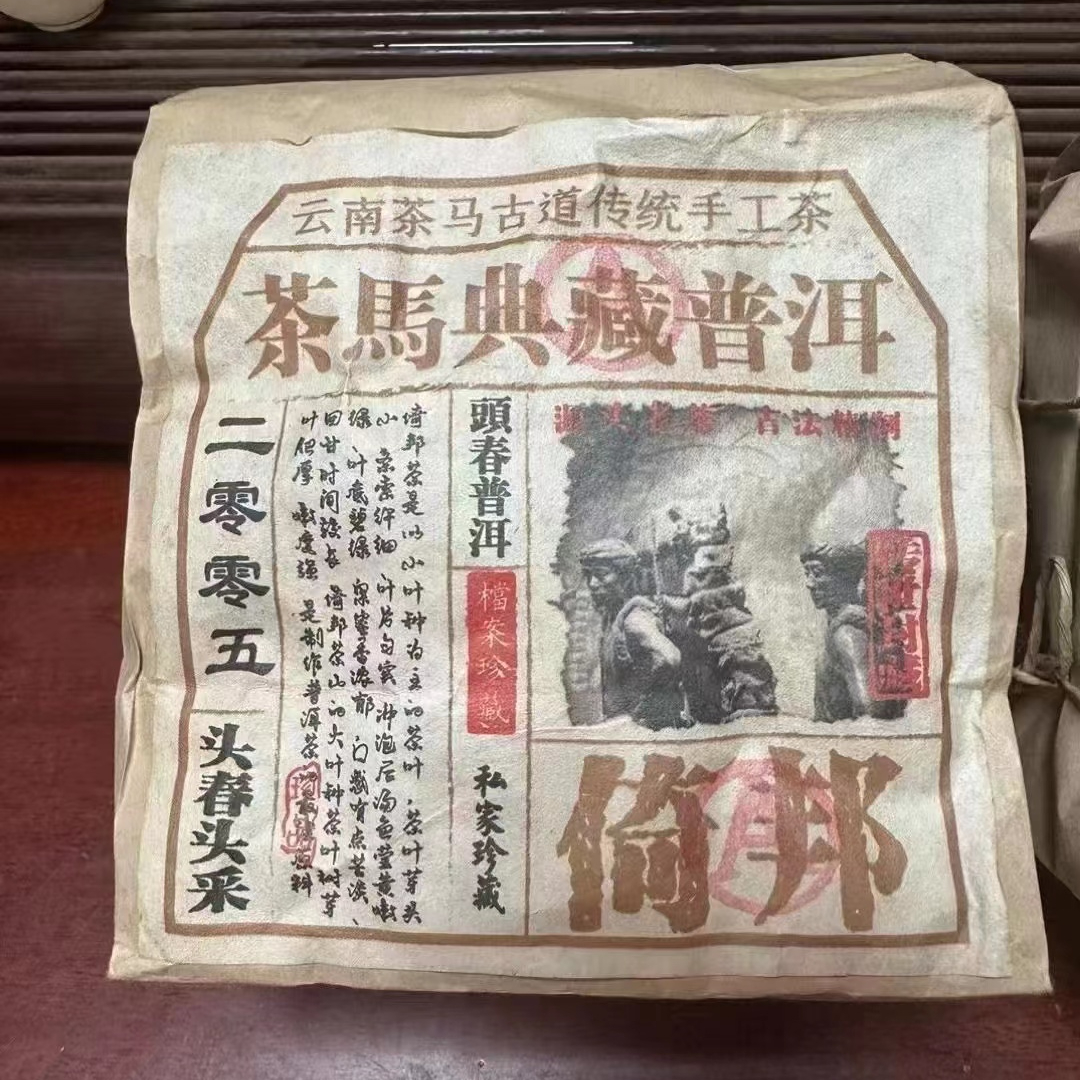 云南茶马古道传统手工茶
茶馬典藏普洱
二零零五
头春头采
倚邦茶是以小叶种为主的茶叶,茶叶芽头
小 条索纤细 叶片匀实 冲泡后汤色莹黄嫩
绿 叶底碧绿 果蜜香浓郁 口感有点苦淡、
回甘时间较长 倚邦茶山的大叶种茶叶树芽
叶 厚 嫩度强 是制作普洱茶 原料
頭春普洱
檔案珍藏
私家珍藏
古法
倚邦